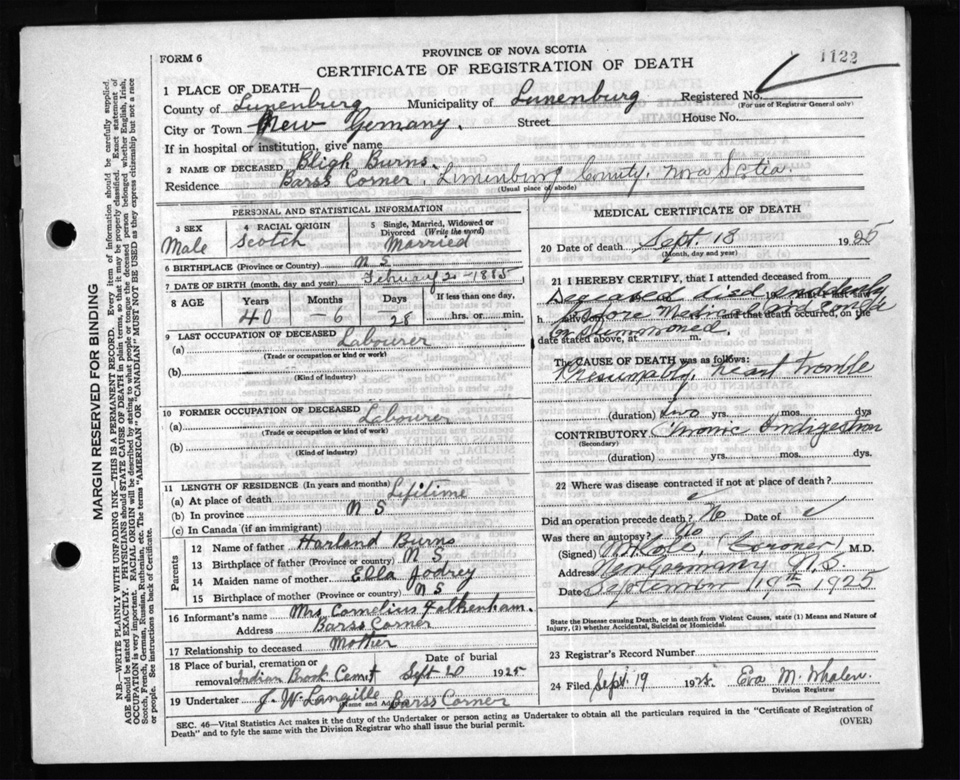 FORM 6
PROVINCE OF NOVA SCOTIA
CERTIFICATE OF REGISTRATION OF DEATH
1122
1 PLACE OF DEATH—
County of Lunenburg Municipality of Lunenburg Registered No.
(For use of Registrar General only)
City or Town New Gemany. Street House No.
If in hospital or institution, give name
2 NAME OF DECEASED Bligh Burns.
Residence Barss Corner. Lunenburg County. Nova Scotia.
(Usual place of abode)
PERSONAL AND STATISTICAL INFORMATION
3 SEX Male
4 RACIAL ORIGIN Scotch
5 Single, Married, Widowed or Divorced (Write the word) Married
6 BIRTHPLACE (Province or Country) N S
7 DATE OF BIRTH (month, day and year) Februry 2 - 1885
8 AGE Years 40 Months 6 Days 28 If less than one day, hrs. or min.
9 LAST OCCUPATION OF DECEASED
(a) Labourer
(Trade or occupation or kind or work)
(b)
(Kind of industry)
10 FORMER OCCUPATION OF DECEASED
(a) Labourer
(Trade or occupation or kind of work)
(b)
(Kind of industry)
11 LENGTH OF RESIDENCE (In years and months)
(a) At place of death Lifetime
(b) In province N S
(c) In Canada (if an immigrant)
Parents
12 Name of father Harland Burns
13 Birthplace of father (Province or country) N S
14 Maiden name of mother Ella Jodrey
15 Birthplace of mother (Province or country) N S
16 Informant's name Mrs Cornelius Falkenham.
Address Barss Corner
17 Relationship to deceased Mother
18 Place of burial, cremation or removal Indian Brook Cemt Date of burial Sept 20 1925
19 Undertaker J. W Langille Barss Corner
(Name and Address)
MEDICAL CERTIFICATE OF DEATH
20 Date of death Sept. 18 1925
(Month, day and year)
21 I HEREBY CERTIFY, that I attended deceased from
Deceased died suddenly
before Medical aid could
be summoned.
death occurred, on the
date stated above, at m.
The CAUSE OF DEATH was as follows:
Presumably, heart trouble
(duration) two yrs. mos. dys
CONTRIBUTORY Chronic Indigestion
(Secondary)
(duration) yrs. mos. dys
22 Where was disease contracted if not at place of death?
Did an operation precede death? No Date of
Was there an autopsy? No
(Signed) (Coroner) M.D.
Address New Germany N.S.
Date September 19th 1925
State the Disease causing Death, or in death from Violent Causes, state (1) Means and Nature of Injury, (2) whether Accidental, Suicidal or Homicidal.
23 Registrar's Record Number
24 Filed Sept. 19 1925. Eva M. Whalen
Division Registrar
SEC. 46—Vital Statistics Act makes it the duty of the Undertaker or person acting as Undertaker to obtain all the particulars required in the "Certificate of Registration of
Death" and to fyle the same with the Division Registrar who shall issue the burial permit.
(OVER)
MARGIN RESERVED FOR BINDING
N.B.—WRITE PLAINLY WITH UNFADING INK—THIS IS A PERMANENT RECORD. Every item of information should be carefully supplied.
AGE should be stated EXACTLY. PHYSICIANS should STATE CAUSE OF DEATH in plain terms, so that it may be properly classified. Exact statement of
OCCUPATION is very important. RACIAL ORIGIN will be described by stating to what people or tongue the deceased person belonged whether English, Irish,
Scotch, French, German, Russian, Ruthenian, etc. The terms "AMERICAN" OR "CANADIAN" MUST NOT BE USED as they express citizenship but not a race
or people. See instructions on back of Certificate.